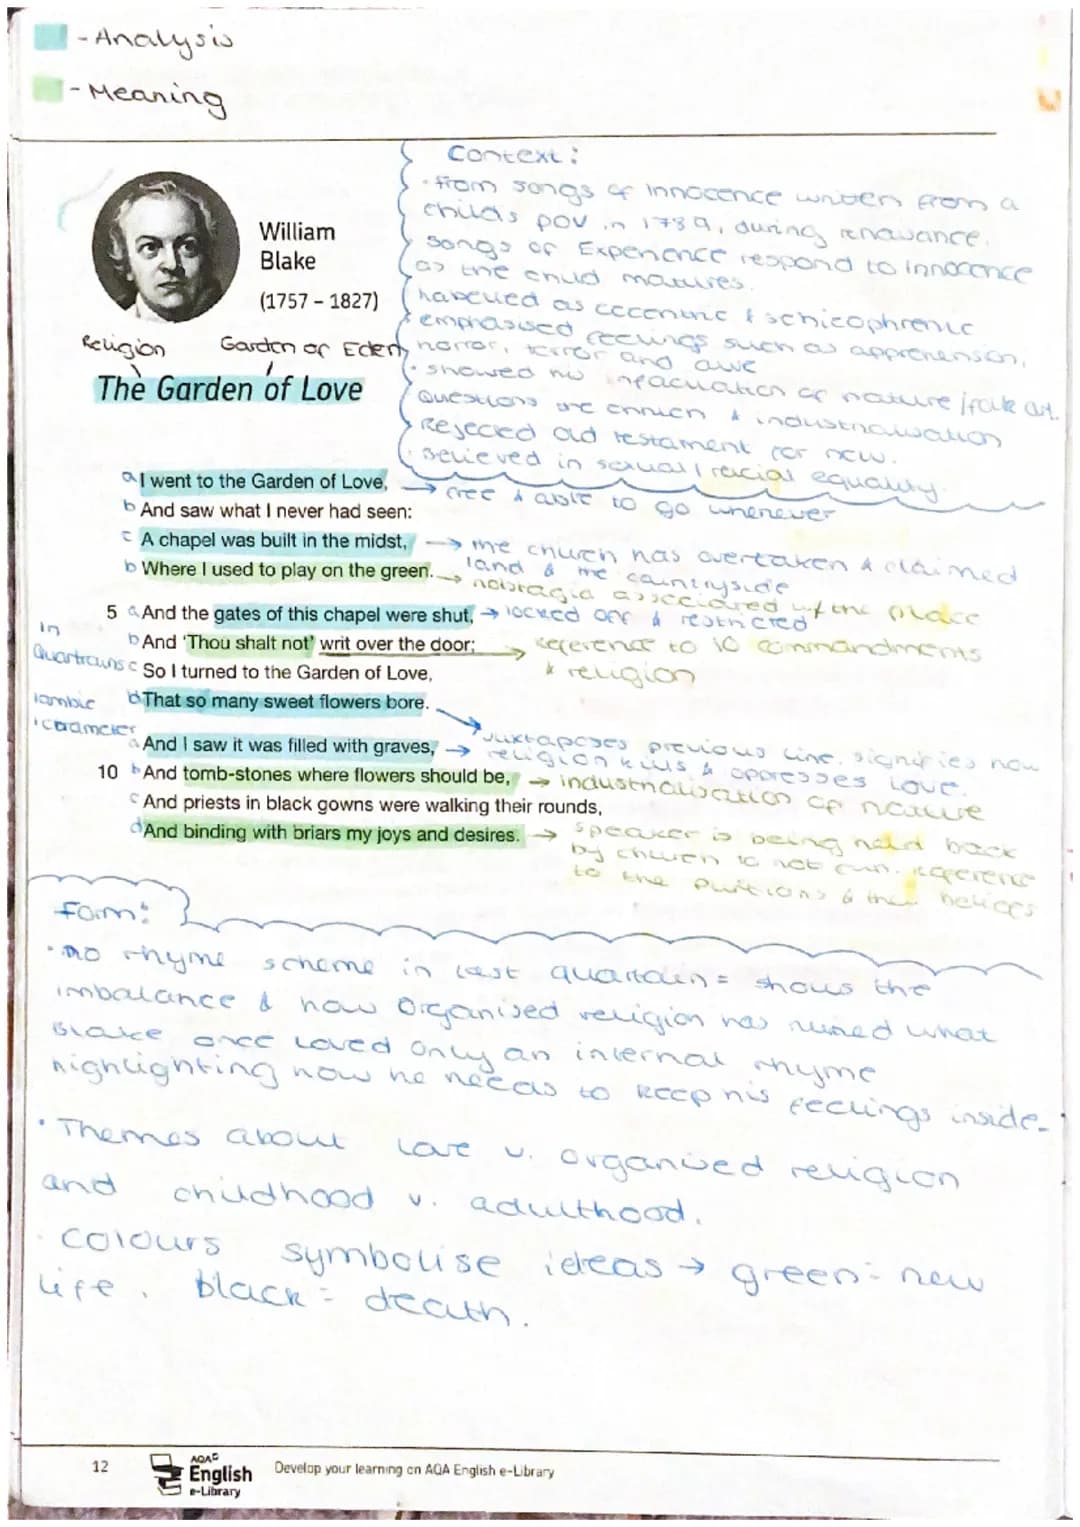 - Analysis
- Meaning
William
Blake
(1757 – 1827)
Religion
Garden of Eden
The Garden of Love
Context:
· from songs of innocence written from a
childs pov in 1789, during renaisance.
songs of Experience respond to innocence
as the child matures.
labelled as eccentric & schizophrenic
emphasised feelings such as apprehension,
horror, terror and awe
· showed his infacuation of nature/folk art.
Questions the church & industrialisation
Rejected old testament for new.
Believed in sexual/racial equality.
a I went to the Garden of Love, → free & able to go whenever
b And saw what I never had seen:
c A chapel was built in the midst, → the church has overtaken & claimed
land & the countryside
b Where I used to play on the green. → nolstagia associated w/ the place
5 a And the gates of this chapel were shut, → locked off & restricted
b And 'Thou shalt not' writ over the door; → reference to 10 commandments
& religion
in
Quartrains
c So I turned to the Garden of Love,
iambic
tetrameter
b That so many sweet flowers bore.
juxtaposes previous line, signifies how
religion kills & oppresses love.
a And I saw it was filled with graves, →
10 b And tomb-stones where flowers should be, → industrialisation of nature
c And priests in black gowns were walking their rounds,
d And binding with briars my joys and desires. → speaker is being held back
by church to not sin. reference
to the puritians & their beliefs
form:
· no rhyme scheme in last quartain = shows the
imbalance & how Organised religion has ruined what
Blake once loved only an internal rhyme
highlighting how he needs to keep his feelings inside.
· Themes about love v. organised religion
and childhood v. adulthood.
· colours symbolise ideas → green = new
life, black = death.
12
AQA
English
e-Library
Develop your learning on AQA English e-Library